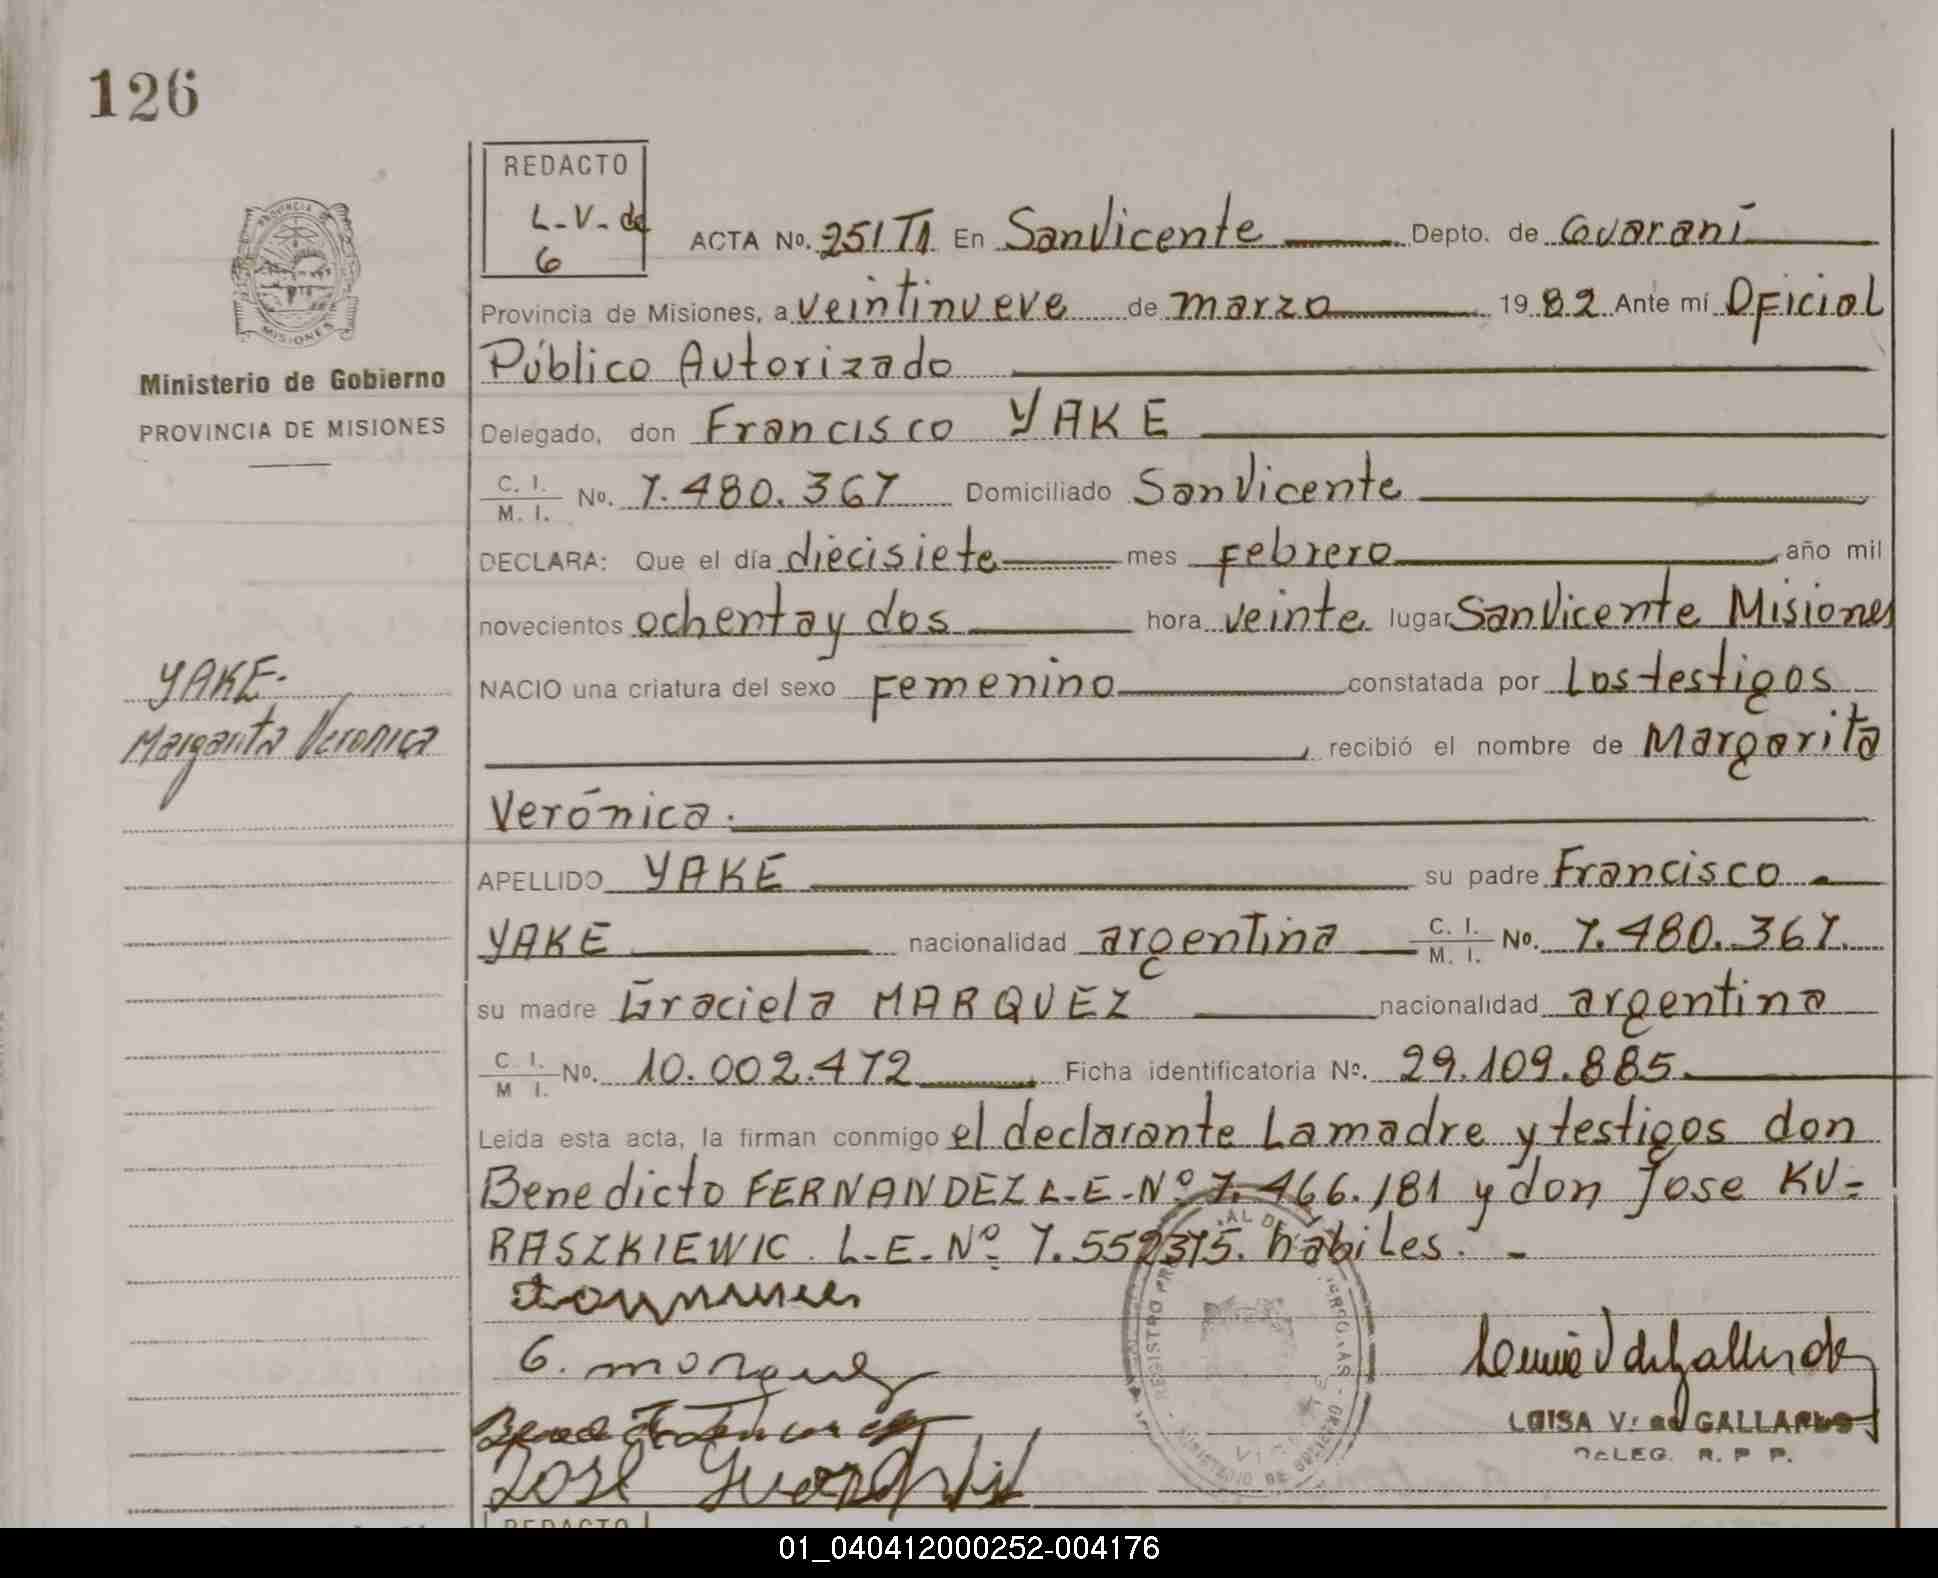 126
REDACTO
L-V- de
G
ACTA No. 251 T1 En San Vicente Depto. de Guaraní
Provincia de Misiones, a veintinueve de marzo 1982 Ante mí Oficial
Público Autorizado
Delegado, don Francisco YAKE
C. I. / M. I. No. 7.480.367 Domiciliado San Vicente
DECLARA: Que el día diecisiete mes febrero año mil
novecientos ochenta y dos hora veinte lugar San Vicente Misiones
NACIO una criatura del sexo femenino constatada por Los testigos
recibió el nombre de Margarita
Verónica.
APELLIDO YAKE su padre Francisco
YAKE nacionalidad argentina C. I. / M. I. No. 7.480.367.
su madre Graciela MARQUEZ nacionalidad argentina
C. I. / M. I. No. 10.002.472 Ficha identificatoria No. 29.109.885.
Leida esta acta, la firman conmigo el declarante La madre y testigos don
Benedicto FERNANDEZ L-E-Nº 7.466.181 y don Jose KU=
RASZKIEWIC. L-E-Nº 7.552375. habiles. -
G. marquez
LUISA V. de GALLARDO
DELEG. R. P P.
PROVINCIA DE
MISIONES
Ministerio de Gobierno
PROVINCIA DE MISIONES
YAKE-
Margarita Veronica
REDACTO
01_040412000252-004176